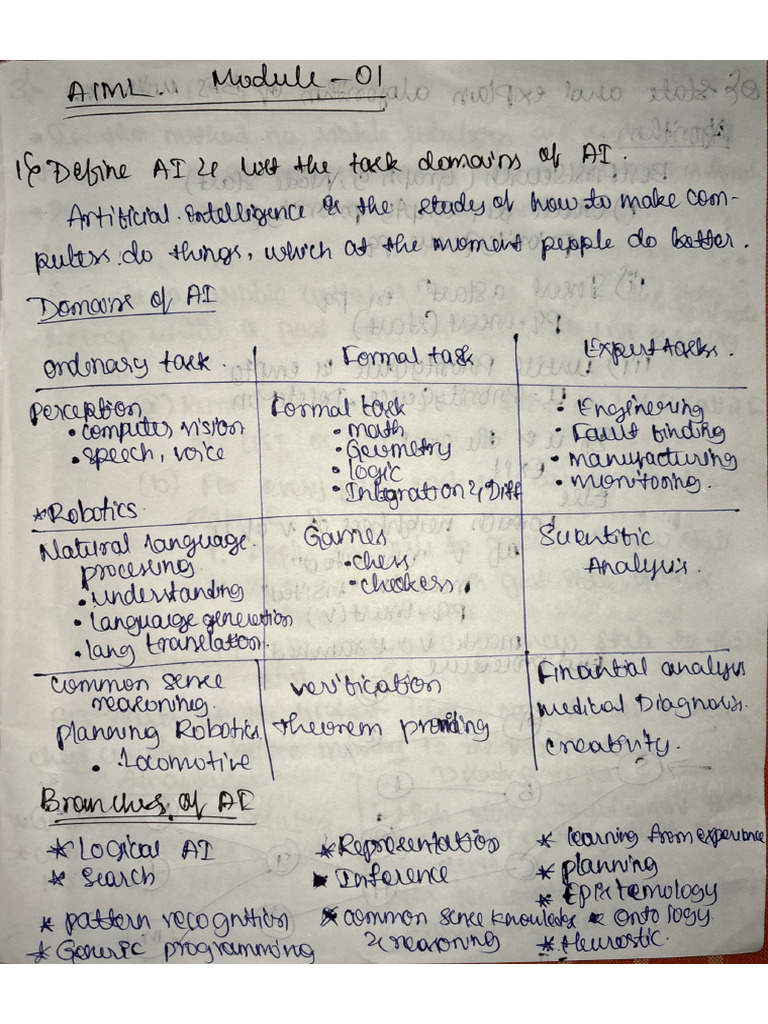 AIML.. Module-01
1Q Define AI & list the task domains of AI.
Artificial Intelligence is the studes of how to make com-
puters do things, which at the moment people do better.
Domains of AI
ordinary task. Formal task Expert tasks.
Perception
• computer vision
• speech, voice
* Robotics.
Formal task
• math
• Geometry
• logic
• Integration & Diff
• Engineering
• Fault finding
• manufacturing
• monitoring.
Natural language
processing
• understanding
• language generation
• lang translation.
Games
• chess
• checkers.
Scientific
Analysis.
Common sense
reasoning.
planning Robotics.
• Locomotive
verification
theorem proving
Finantial analysis
Medical Diagnosis.
creativity.
Branches of AI
* Logical AI * Representation * learning from experience
* Search * Inference * planning
* Epistemology
* pattern recognition * common sense knowledge * Ontology.
& reasoning
* Generic programming * Heurestic.